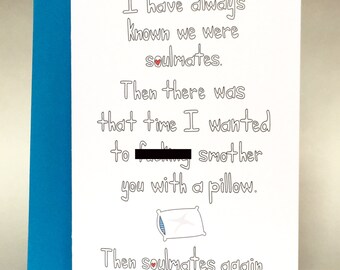 I have always
known we were
soulmates.
Then there was
that time I wanted
to smother
you with a pillow.
Then soulmates again